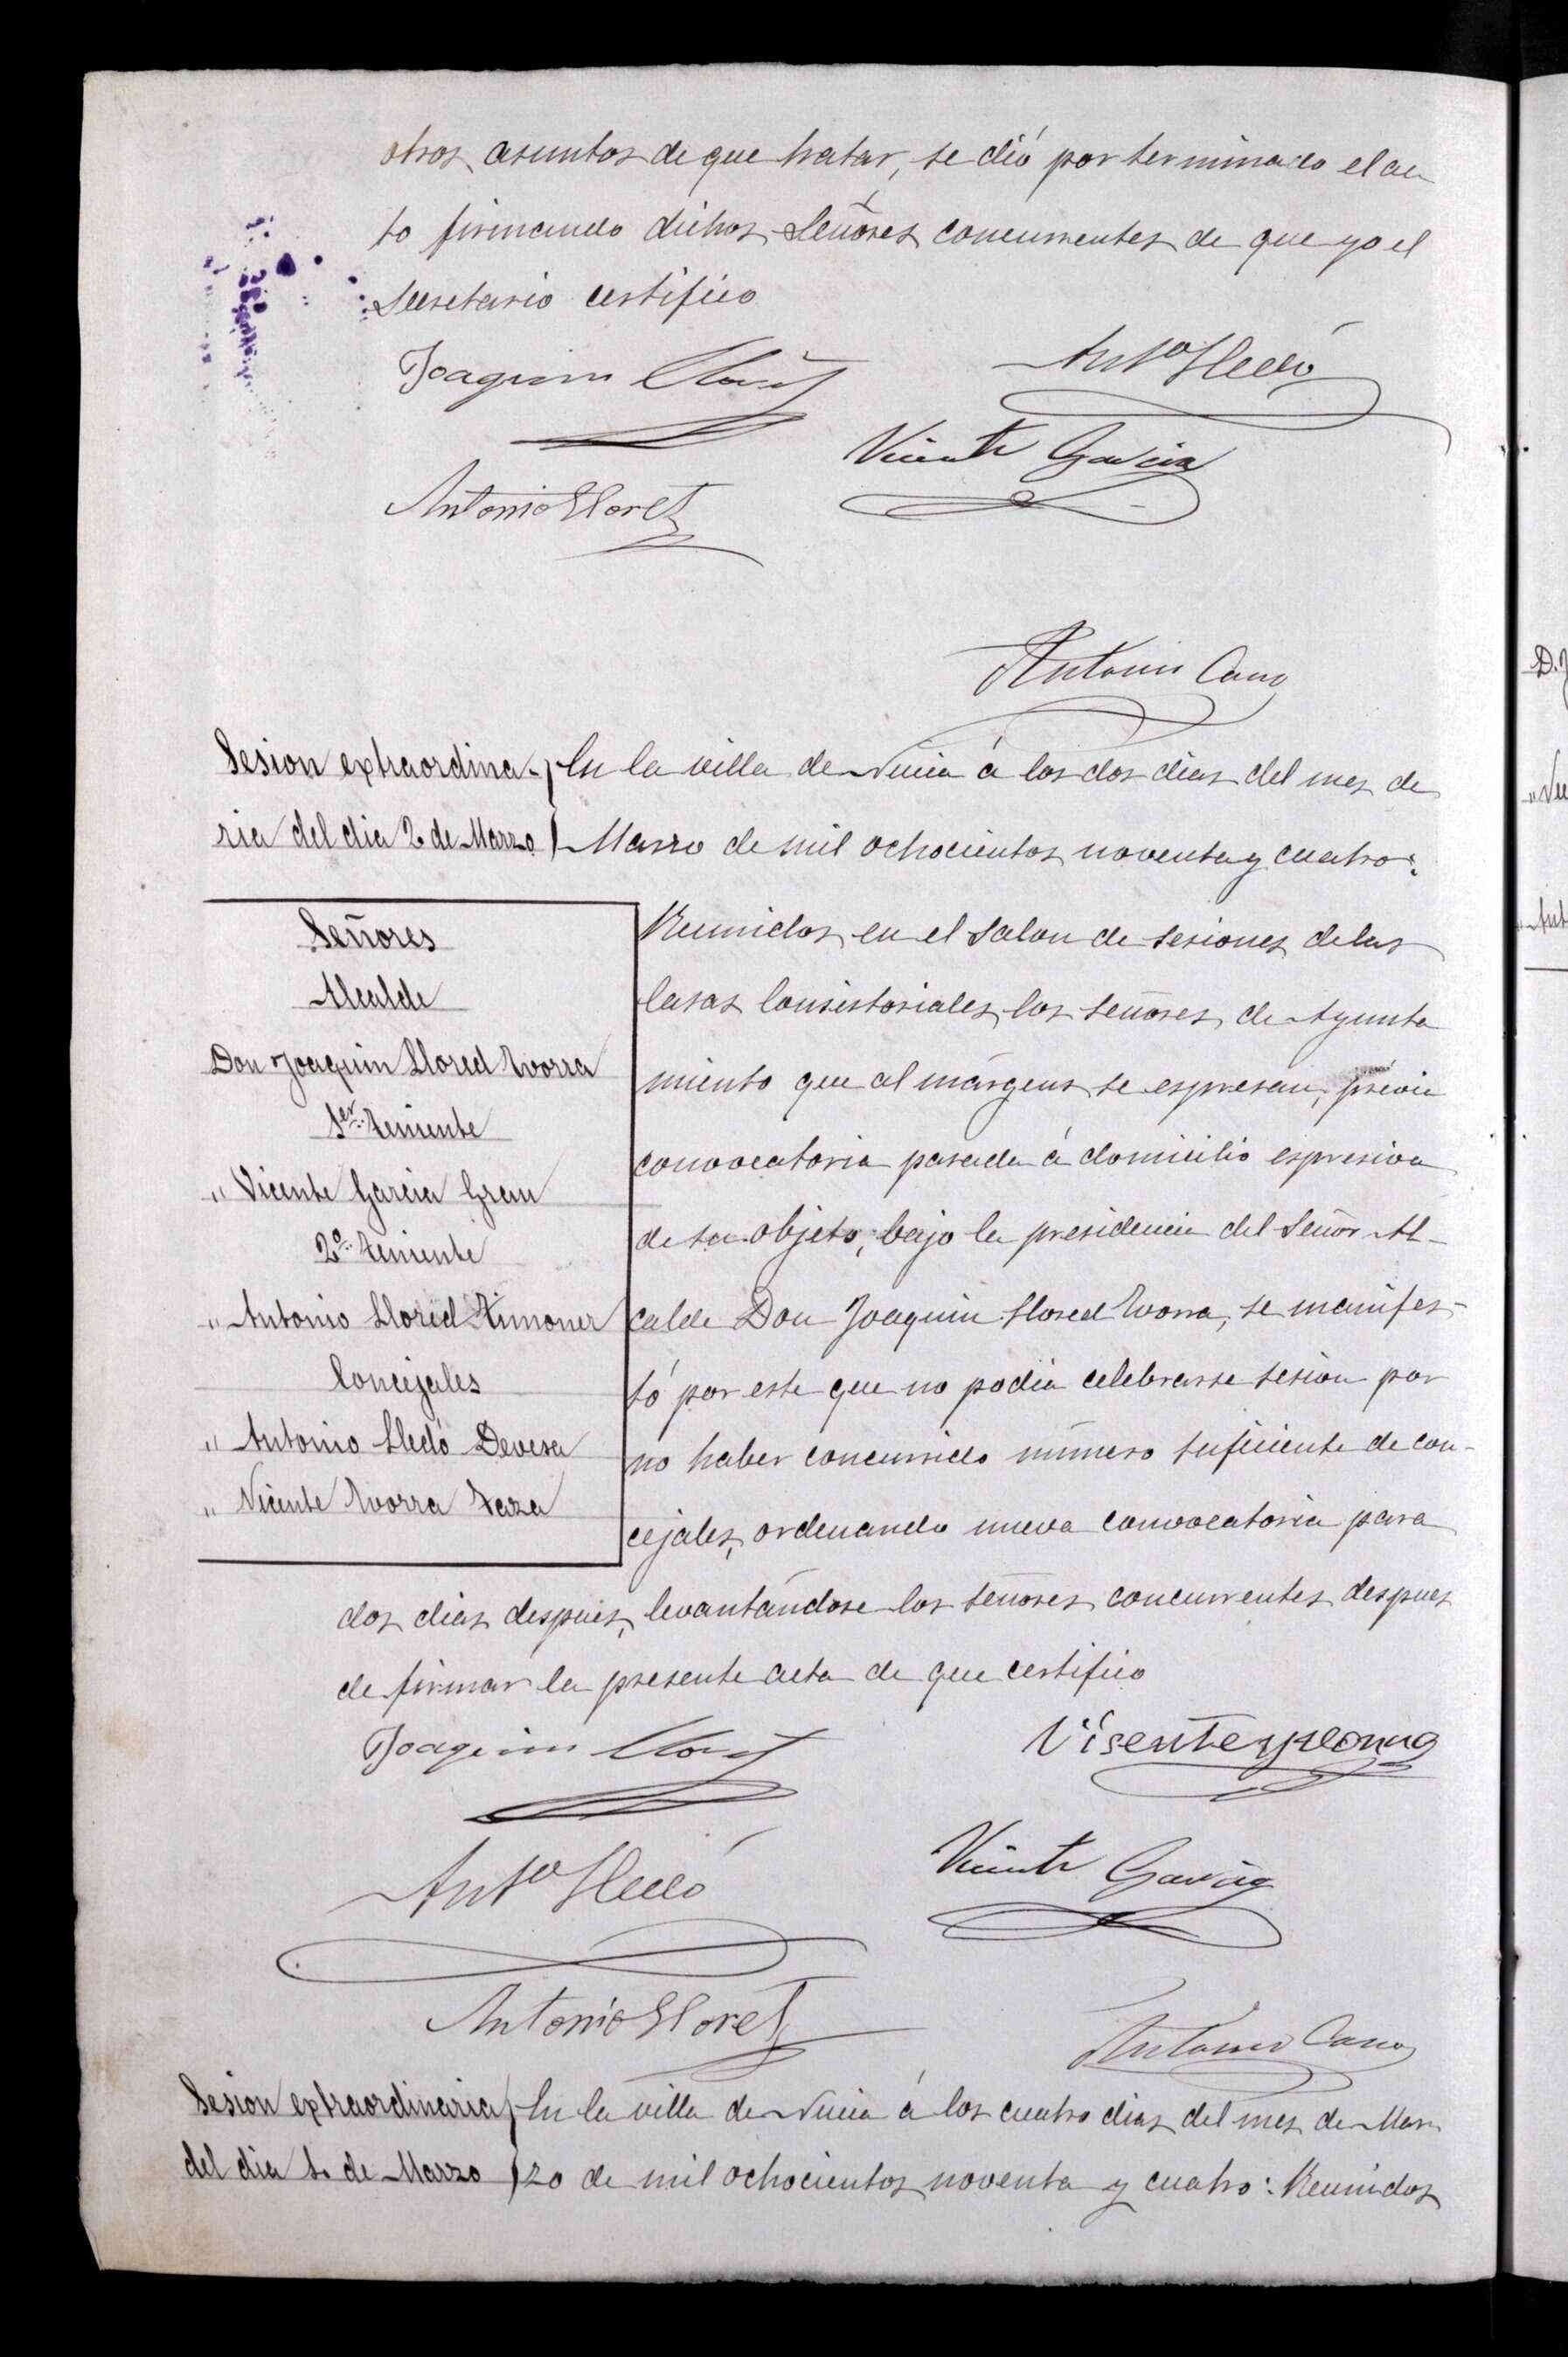 otros asuntos de que tratar, se dió por terminado el ac
to firmando dichos Señores concurrentes de que yo el
Secretario certifico
Joaquin Lloret
Antº Lledó
Vicente Garcia
Antonio Lloret
Antonio Cano
Sesion extraordina-
ria del dia 2 de Marzo
En la villa de Nucia á los dos dias del mes de
Marzo de mil ochocientos noventa y cuatro:
Señores
Alcalde
Don Joaquin Llored Ivorra
1er. Teniente
" Vicente Garcia Grau
2º. Teniente
" Antonio Llored Ximoner
Concejales
" Antonio Lledó Devesa
" Vicente Ivorra Taza
Reunidos en el Salon de sesiones de las
Casas Consistoriales los señores de Ayunta
miento que al márgens se espresan, prévia
convocatoria pasada á domicilio espresiva
de su objeto, bajo la presidencia del Señor Al-
calde Don Joaquin Llored Ivorra, se manifes-
tó por este que no podia celebrarse sesion por
no haber concurrido número suficiente de con-
cejales, ordenando nueva convocatoria para
dos dias despues, levantándose los señores concurrentes despues
de firmar la presente acta de que certifico
Joaquin Lloret
Antº Lledó
Vicente Garcia
Antonio Lloret
Antonio Cano
Sesion extraordinaria
del dia 4. de Marzo
En la villa de Nucia á los cuatro dias del mes de Mar
zo de mil ochocientos noventa y cuatro: Reunidos